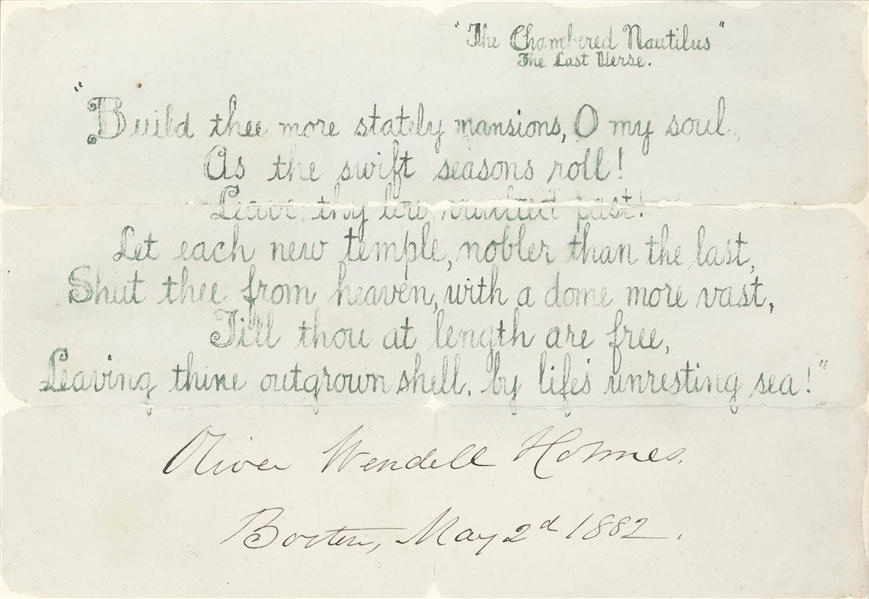 "The Chambered Nautilus"
The Last Verse.
"Build thee more stately mansions, O my soul,
As the swift seasons roll!
Leave thy low vaulted past!
Let each new temple, nobler than the last,
Shut thee from heaven, with a dome more vast,
Till thou at length are free,
Leaving thine outgrown shell. by life's unresting sea!"
Oliver Wendell Holmes.
Boston, May 2d 1882.